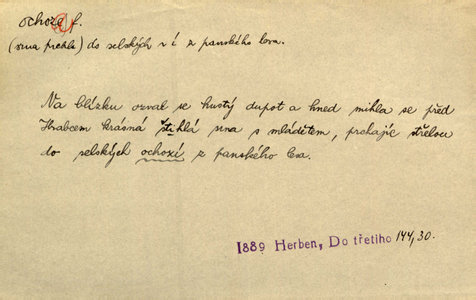 ochoze f.
(srna prchla) do selských v í z panského lesa.
Na blízku ozval se hustý dupot a hned mihla se před
Hrabcem krásná štíhlá srna s mládětem, prchajíc střelou
do selských ochozí z panského lesa.
1889 Herben, Do třetího 144,30.